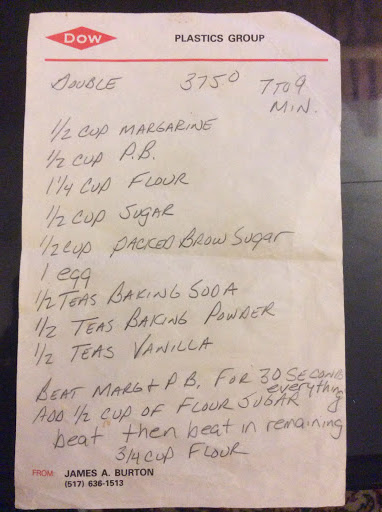 DOW
PLASTICS GROUP
DOUBLE 375° 7 TO 9
MIN.
1/2 CUP MARGARINE
1/2 CUP P.B.
1 1/4 CUP FLOUR
1/2 CUP SUGAR
1/2 CUP PACKED BROW SUGAR
1 egg
1/2 TEAS BAKING SODA
1/2 TEAS BAKING POWDER
1/2 TEAS VANILLA
BEAT MARG + P.B. FOR 30 SECONDS
everything
ADD 1/2 CUP OF FLOUR SUGAR
beat then beat in remaining
3/4 CUP FLOUR
FROM: JAMES A. BURTON
(517) 636-1513